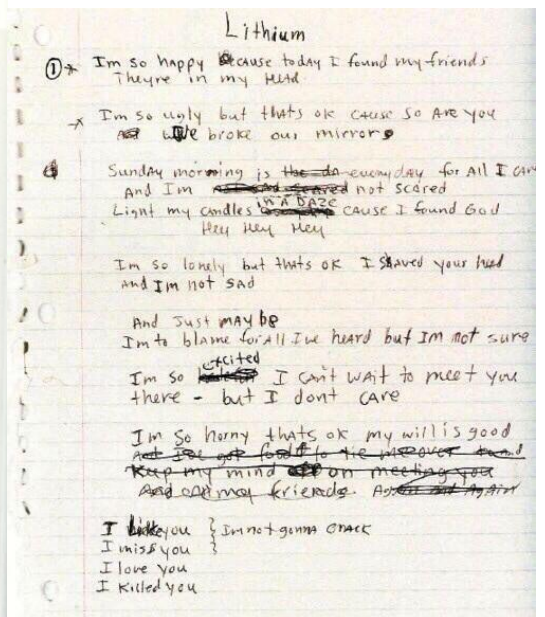 Lithium
① * Im so happy Because today I found my friends
Theyre in my Head
* Im so ugly but thats ok cause so Are you
We broke our mirrors
Sunday morning is everyday for All I care
And I'm not scared
in A DAZE
Light my candles cause I found God
Hey Hey Hey
Im so lonely but thats ok I shaved your head
And Im not SAD
And Just MAY be
Im to blame for all Ive heard but Im not sure
excited
Im so I can't wait to meet you
there - but I dont CARE
Im so horny thats ok my will is good
And Ive got to tie me over
Keep my mind on meeting you
And friends. Again and Again
I like you } Im not gonna CRACK
I miss you }
I love you
I Killed you